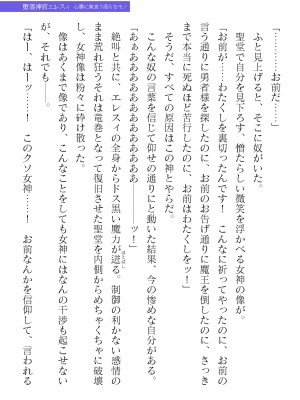 堕落神官エレスイ 心臓に巣食う淫らなモノ
「………お前だ……」
ふと見上げると、そこに奴がいた。
聖堂で自分を見下ろす、憎たらしい微笑を浮かべる女神の像が。
「お前が……わたくしを裏切ったんです! こんなに祈ってやったのに、お前の
言う通りに勇者様を探したのに、お前のお告げ通りに魔王を倒したのに、さっき
本当に死ぬほど苦行したのに、お前はわたくしをッ!」
そうだ、すべての原因はこの神とやらだ。
こんな奴の言葉を信じて仰せの通りにと動いた結果、今の惨めな自分がある。
「あぁぁぁぁあああああああ――――ッ!」
絶叫と共に、エレスイの全身からドス黒い魔力が迸る。制御の利かない感情の
まま荒れ狂うそれは竜巻となって復旧させた聖堂を内側からめちゃくちゃに破壊
し、女神像は粉々に砕け散った。
像はあくまで像であり、こんなことをしても女神にはなんの干渉も起こせない
が、それでも――。
「はー、はーッ! このクソ女神……! お前なんかを信仰して、言われる